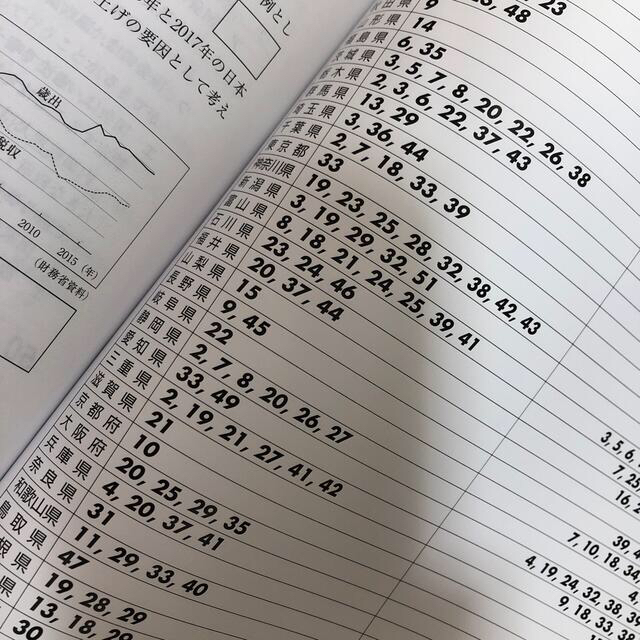 例とし
年と2017年の日本
上げの要因として考え
歳出
税収
2010
2015 (年)
(財務省資料)
23
田県 9
形県 14
島県 6, 35
城県 3, 5, 7, 8, 20, 22, 26, 38
栃木県 2, 3, 6, 22, 37, 43
群馬県 13, 29
埼玉県 3, 36, 44
千葉県 2, 7, 18, 33, 39
東京都 33
神奈川県 19, 23, 25, 28, 32, 38, 42, 43
新潟県 3, 19, 29, 32, 51
富山県 8, 18, 21, 24, 25, 39, 41
石川県 23, 24, 46
福井県 20, 37, 44
山梨県 15
長野県 9, 45
岐阜県 22
静岡県 2, 7, 8, 20, 26, 27
愛知県 33, 49
三重県 2, 19, 21, 27, 41, 42
滋賀県 21
京都府 10
大阪府 20, 25, 29, 35
兵庫県 4, 20, 37, 41
奈良県 31
和歌山県 11, 29, 33, 40
鳥取県 47
根県 19, 28, 29
県 13, 18, 29
30
3, 5, 6,
7, 25
16, 2
39,
7, 10, 18, 34
4, 19, 24, 32, 38, 3
9, 18, 33,